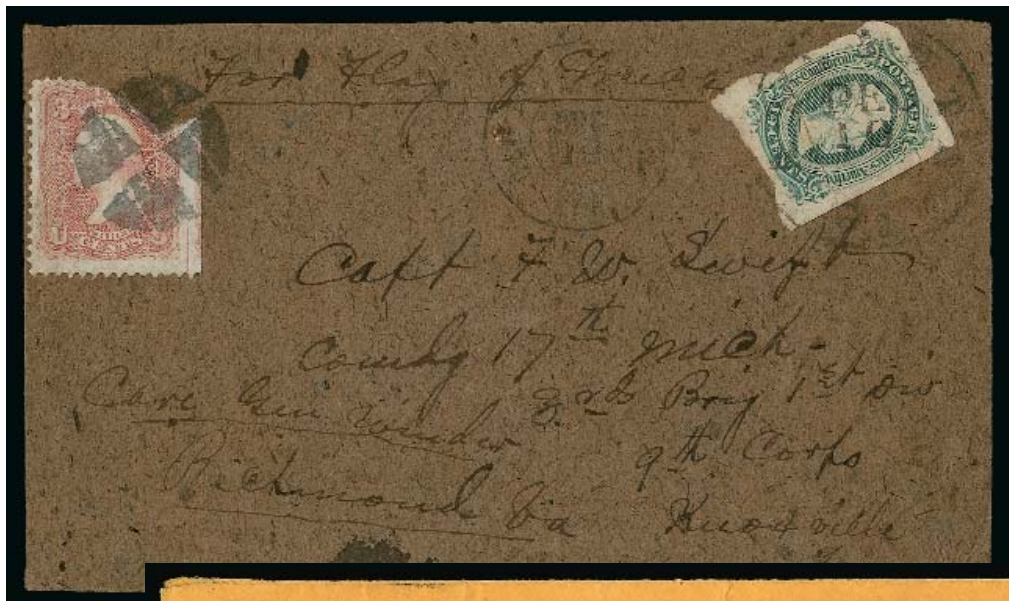 For Flag of Truce
Capt F W. Swift
Comdg 17th Mich-
3rd Brig 1st Div
9th Corps
Knoxville
Care Gen Winder
Richmond Va